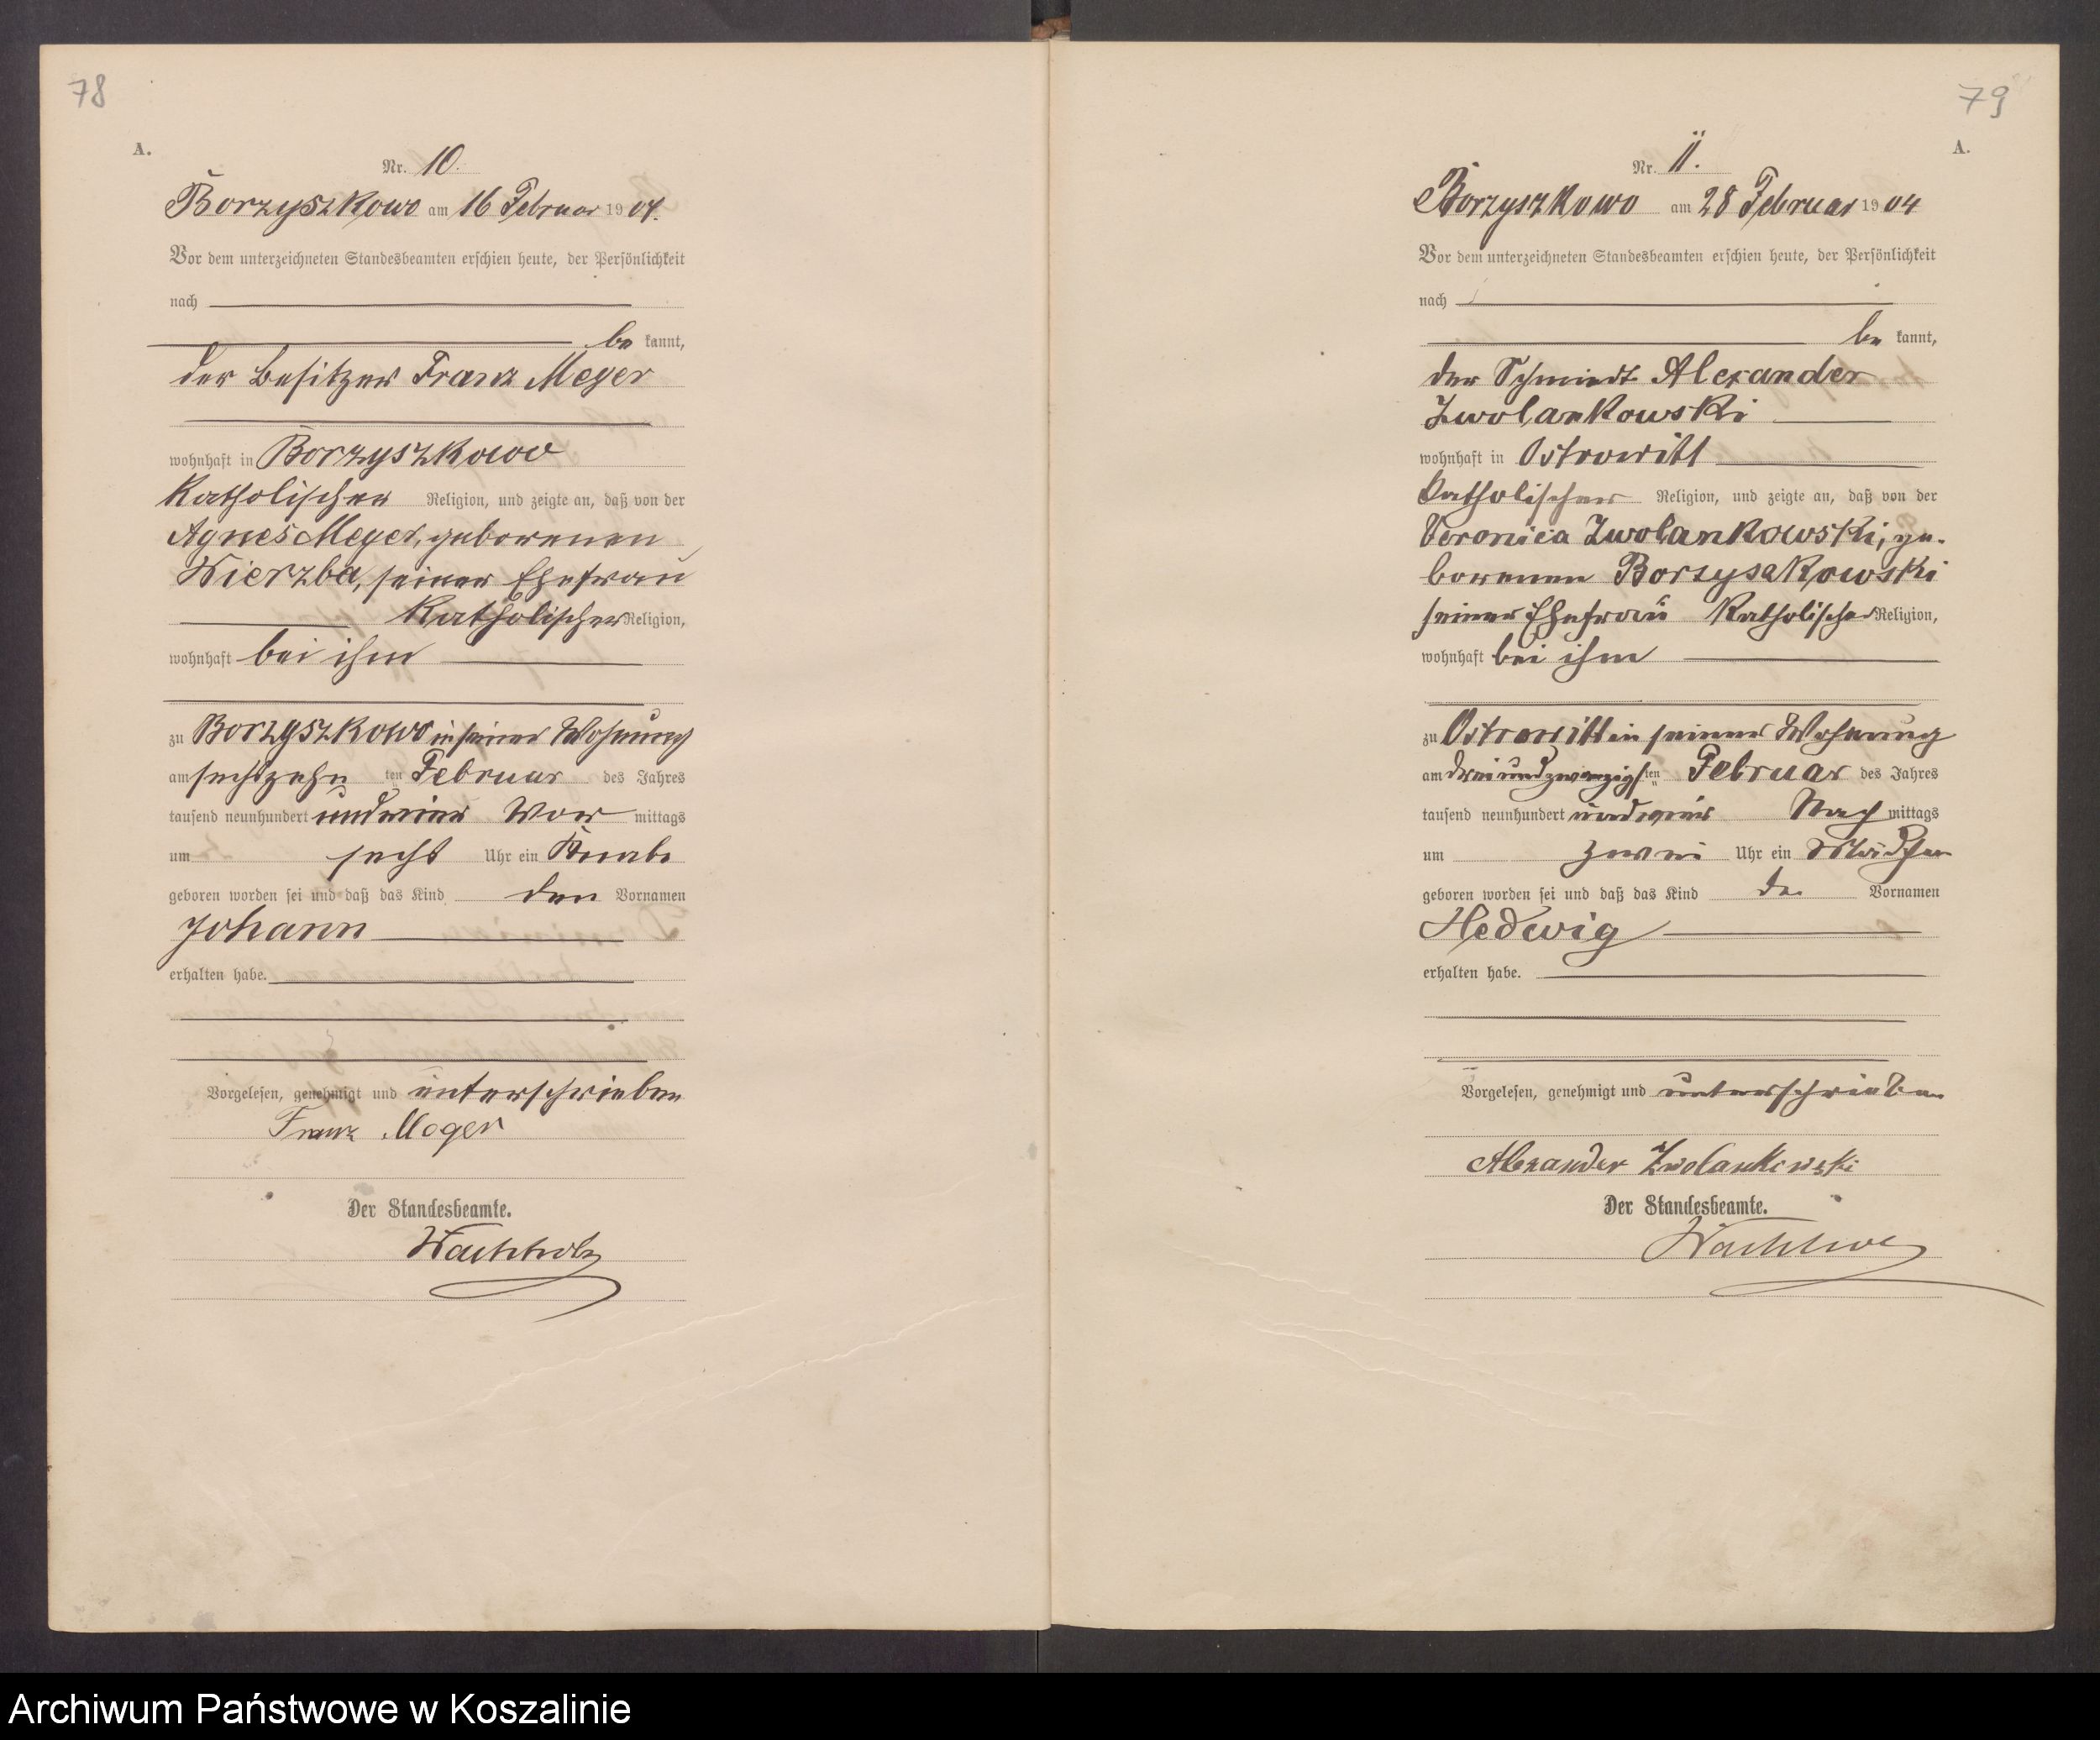 78
A.
Nr. 10.
Borzyszkowo am 16 Februar 1904.
Vor dem unterzeichneten Standesbeamten erschien heute, der Persönlichkeit
nach
be kannt,
der Besitzer Franz Meyer
wohnhaft in Borzyszkowo
katholischer Religion, und zeigte an, daß von der
Agnes Meyer, geborenen
Wierzba, seiner Ehefrau
katholischer Religion,
wohnhaft bei ihm
zu Borzyszkowo in seiner Wohnung
am sechszehn ten Februar des Jahres
tausend neunhundert und vier Vor mittags
um sechs Uhr ein Knabe
geboren worden sei und daß das Kind den Vornamen
Johann
erhalten habe.
Vorgelesen, genehmigt und unterschrieben
Franz Meyer
Der Standesbeamte.
Wachholz
79
A.
Nr. 11.
Borzyszkowo am 28 Februar 1904
Vor dem unterzeichneten Standesbeamten erschien heute, der Persönlichkeit
nach
be kannt,
der Schmiedt Alexander
Zwolankowski
wohnhaft in Ostrowitt
katholischer Religion, und zeigte an, daß von der
Veronica Zwolankowski, ge-
borenen Borzyszkowski
seiner Ehefrau katholischer Religion,
wohnhaft bei ihm
zu Ostrowitt in seiner Wohnung
am dreiundzwanzigs ten Februar des Jahres
tausend neunhundert und vier Nach mittags
um zwei Uhr ein Mädchen
geboren worden sei und daß das Kind den Vornamen
Hedwig
erhalten habe.
Vorgelesen, genehmigt und unterschrieben
Alexander Zwolankowski
Der Standesbeamte.
Wachholz
Archiwum Państwowe w Koszalinie